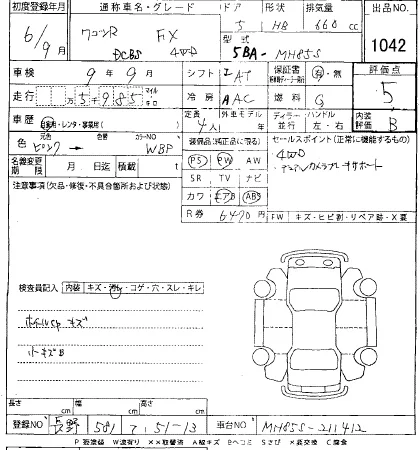 初度登録年月 通称車名・グレード ドア 形状 排気量 出品NO
6/9月 ワゴンR FX 5 HB 660cc 1042
DCBS 4WD 型式 5BA-MH85S
車検 9年9月 シフト IAT 保証書 有・無 評価点
走行 5千985 マイル キロ 冷房 AAC 燃料 G 5
車歴 自家用・レンタ・事業用( ) 定員 4人 外車モデル年 ディーラー 並行 ハンドル 左・右 内装評価 B
色 元色 ピンク 色替 カラーNO WBP 装備品(純正品に限る) セールスポイント(正常に機能するもの)
名義変更期限 月 日迄 積載 t PS PW AW 4WD
SR TV ナビ デュアルカメラブレーキサポート
注意事項(欠品・修復・不具合箇所および状態) カワ エアB ABS
R券 6470円 FW キズ・ヒビ割・リペア跡・X要
検査員記入 内装 キズ・汚れ・コゲ・穴・スレ・キレ
ホイールcap キズ
小キズB
長さ cm 幅 cm 高さ cm
登録NO 長野 581 て 51-13 車台NO MH85S-211412
P 要塗装 W波有り ××取替済 A線キズ Bヘコミ Sさび ×要交換 C腐食